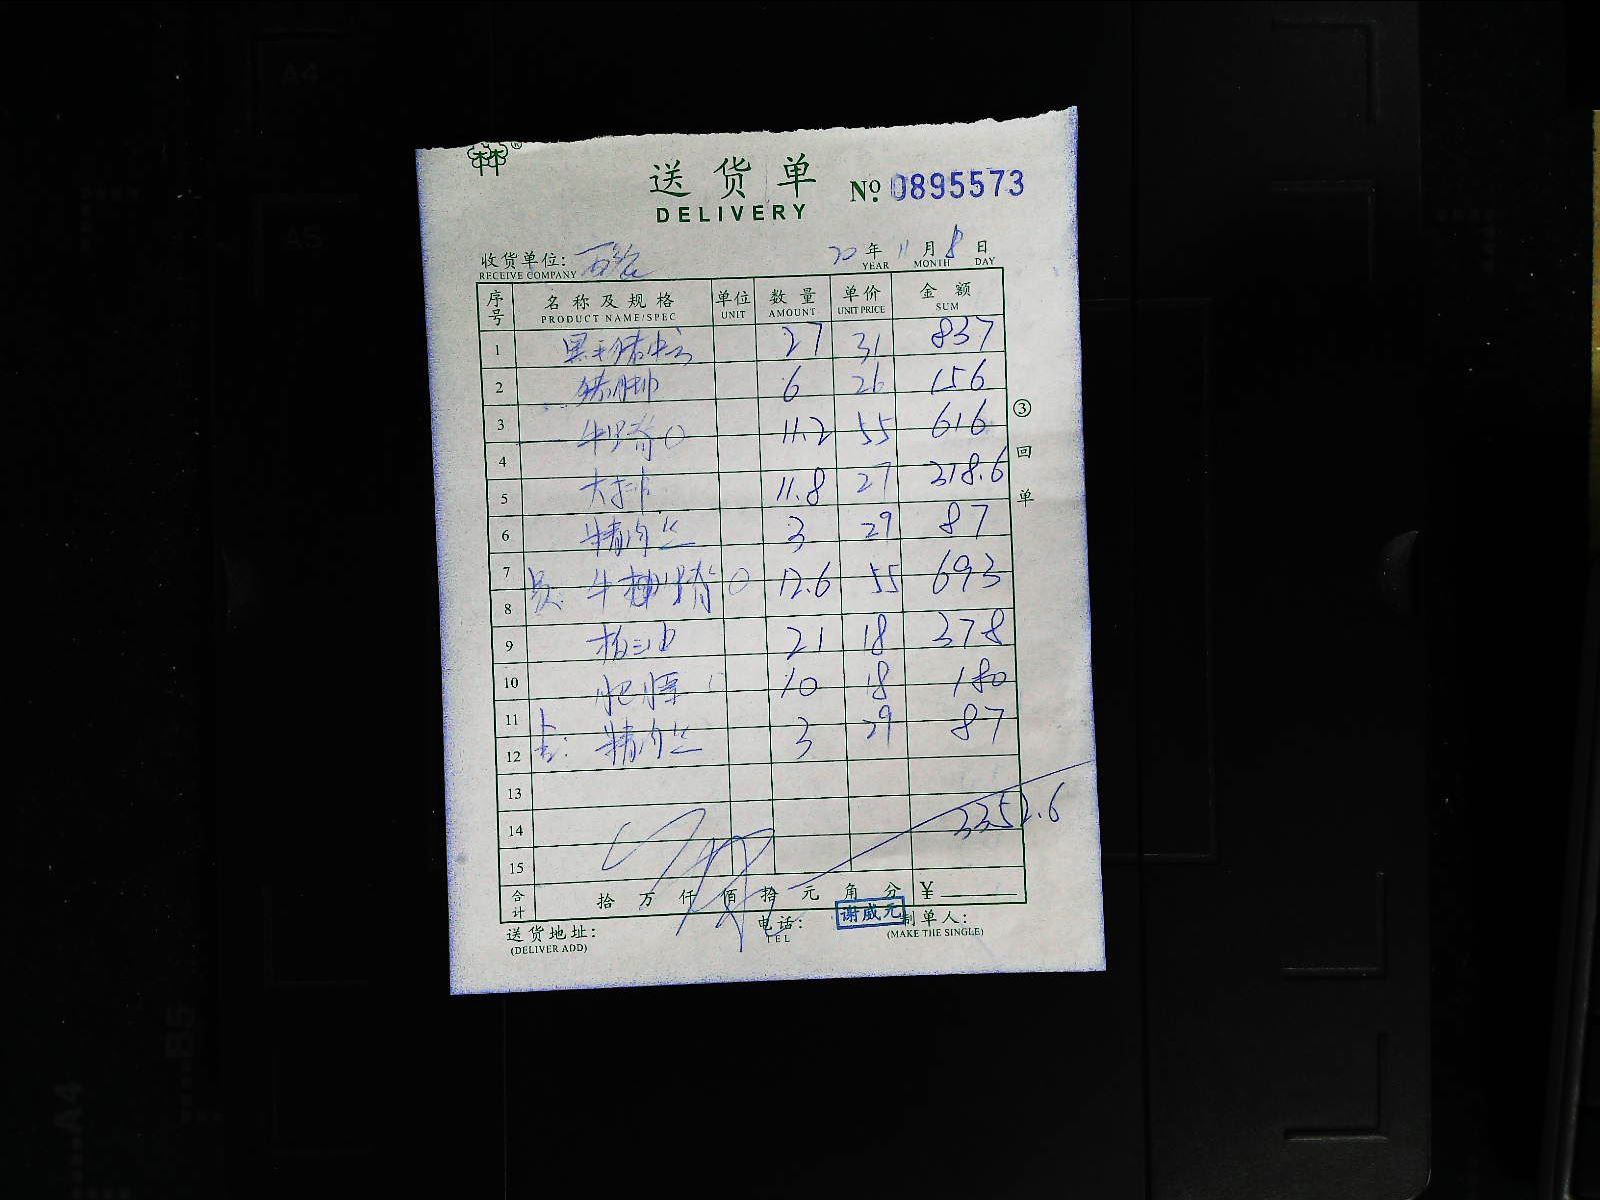 送货单
DELIVERY
№ 0895573
收货单位:
RECEIVE COMPANY
20 年 11 月 8 日
YEAR MONTH DAY
序号 名称及规格 单位 数量 单价 金额
PRODUCT NAME/SPEC UNIT AMOUNT UNIT PRICE SUM
1 27 31 837
2 猪脚 6 26 156
3 11.2 55 616
4
5 大排 11.8 27 318.6
6 精肉丝 3 29 87
7 12.6 55 693
8
9 21 18 378
10 肥膘 10 18 180
11 精肉丝 3 29 87
12
13
14 3352.6
15
合计 拾 万 仟 佰 拾 元 角 分 ¥
③
回
单
送货地址:
(DELIVER ADD)
电话:
TEL
谢威元
制单人:
(MAKE THE SINGLE)
A4
A5
B5
A4